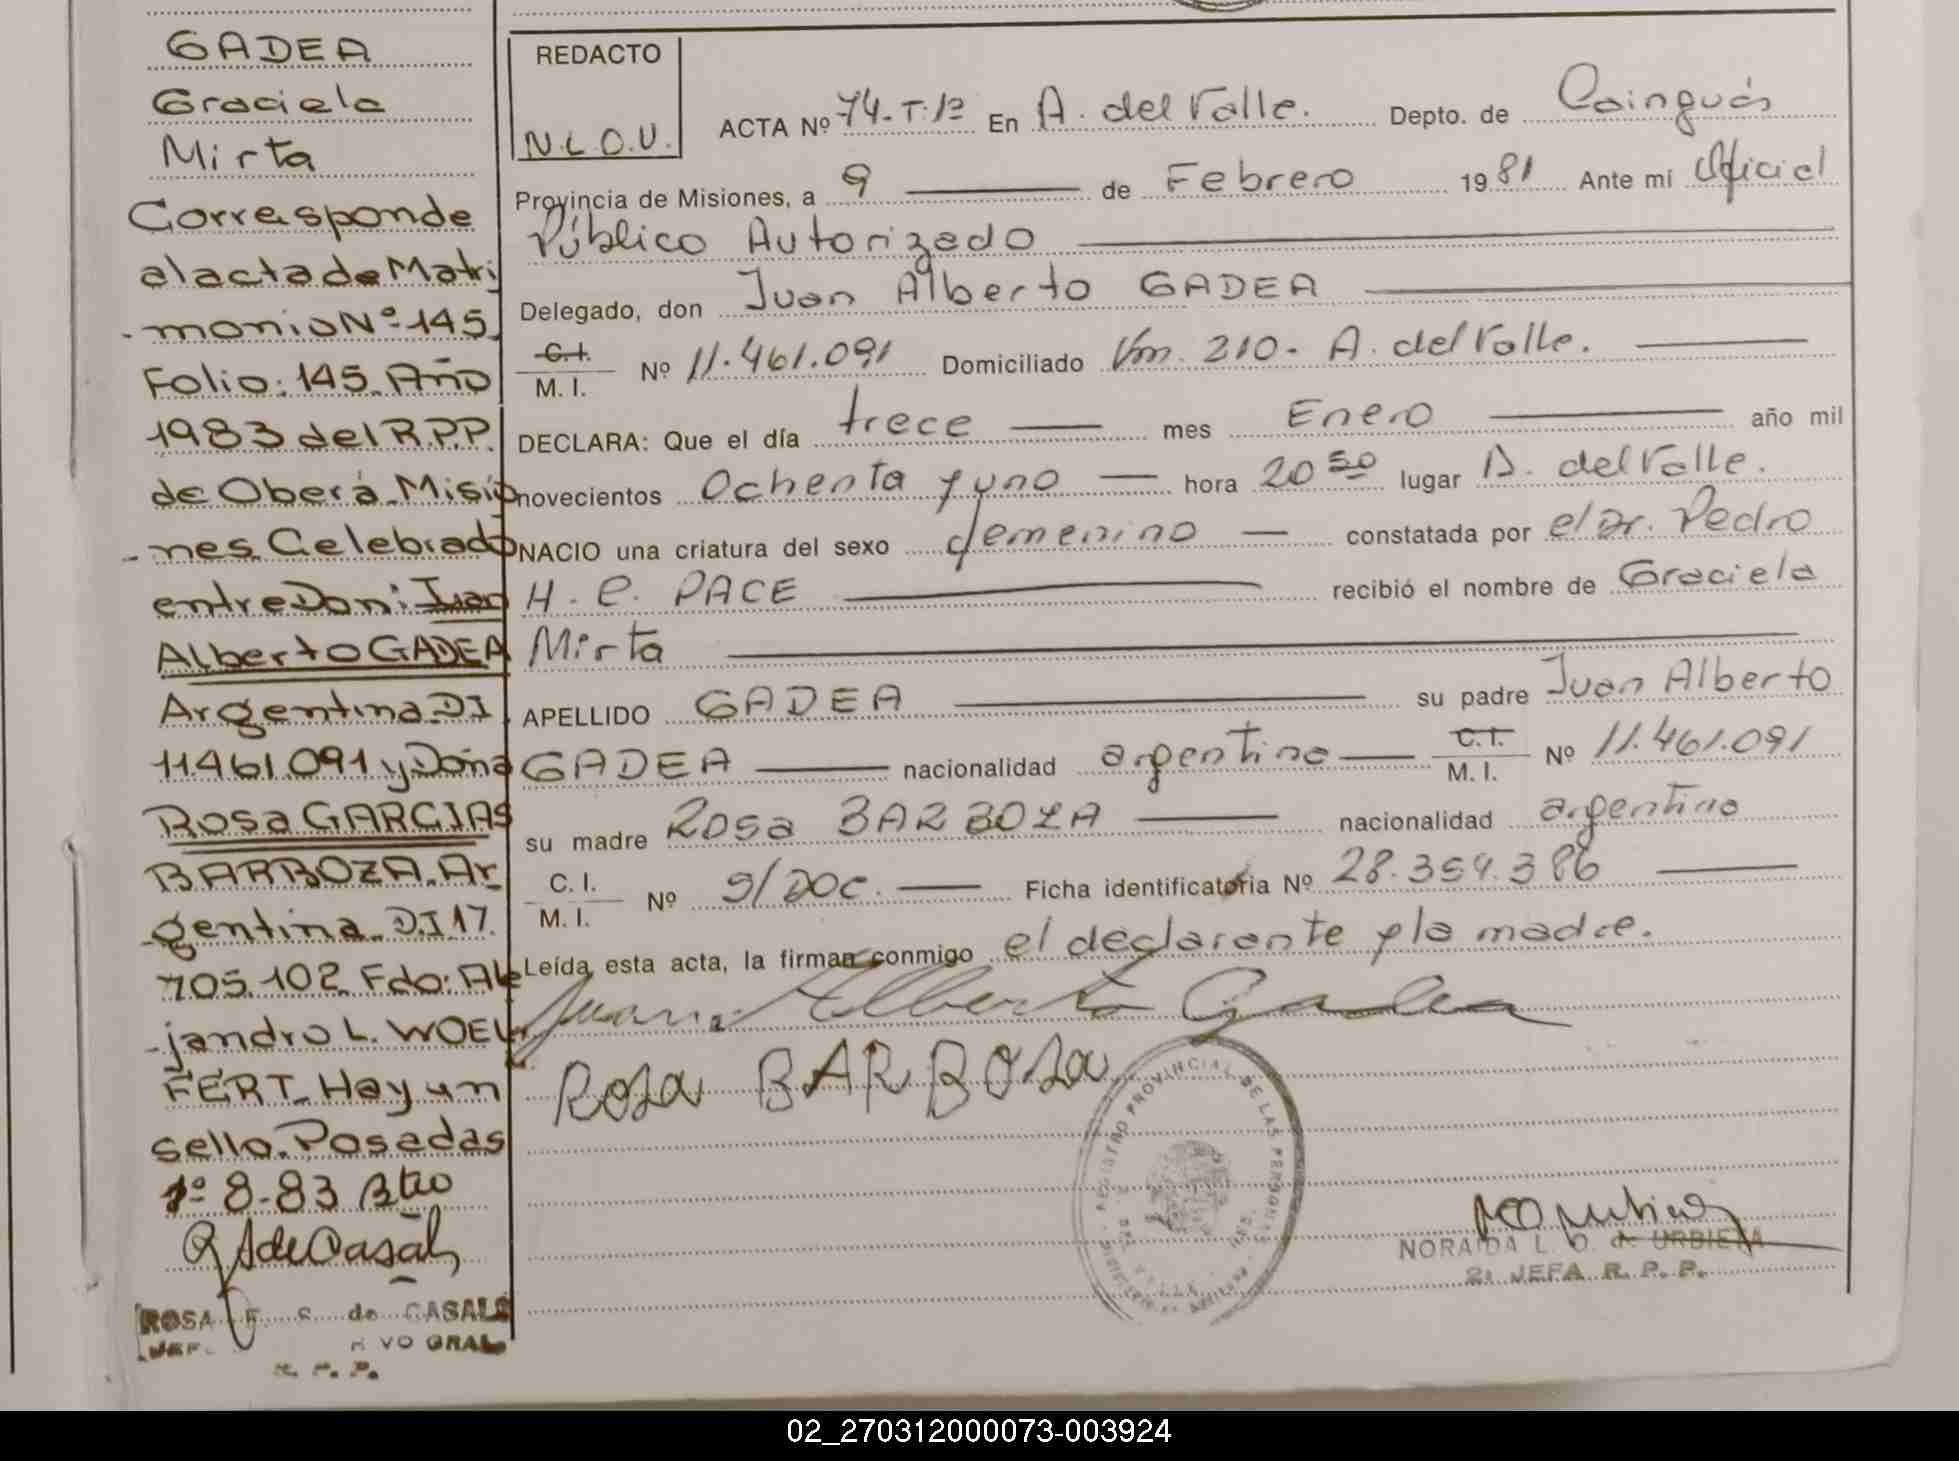 GADEA
Graciela
Mirta
Corresponde
al acta de Matri
-monio Nº 145
Folio: 145. Año
1983 del R.P.P.
de Oberá. Misio
-nes. Celebrado
entre Don: Juan
Alberto GADEA
Argentina. D I
11461.091 y Doña
Rosa GARCIAS
BARBOZA. Ar
-gentina. D.I 17.
705.102. Fdo: Ale
-jandro L. WOEL
FERT. Hay un
sello. Posadas
1º 8-83
ROSA E. S. de CASALS
VO GRAL.
R. P. P.
REDACTO
N.L.O.U.
ACTA Nº 74-T.1º En A. del Valle. Depto. de Cainguás
Provincia de Misiones, a 9 de Febrero 1981 Ante mi Oficial
Público Autorizado
Delegado, don Juan Alberto GADEA
C.I.
M. I. Nº 11.461.091 Domiciliado Km. 210- A. del Valle.
DECLARA: Que el día trece mes Enero año mil
novecientos Ochenta y uno hora 20 50 lugar A. del Valle.
NACIO una criatura del sexo femenino constatada por el Dr. Pedro
H. C. PACE recibió el nombre de Graciela
Mirta
APELLIDO GADEA su padre Juan Alberto
GADEA nacionalidad argentina C.I.
M. I. Nº 11.461.091
su madre Rosa BARBOZA nacionalidad argentina
C. I.
M. I. Nº S/DOC. Ficha identificatoria Nº 28.354.386
Leída esta acta, la firman conmigo el declarante y la madre.
Juan Alberto Gadea
Rosa BARBOSa
REGISTRO PROVINCIAL DE LAS PERSONAS
NORAIDA L. O. de URBIETA
2: JEFA R. P. P.
02_270312000073-003924